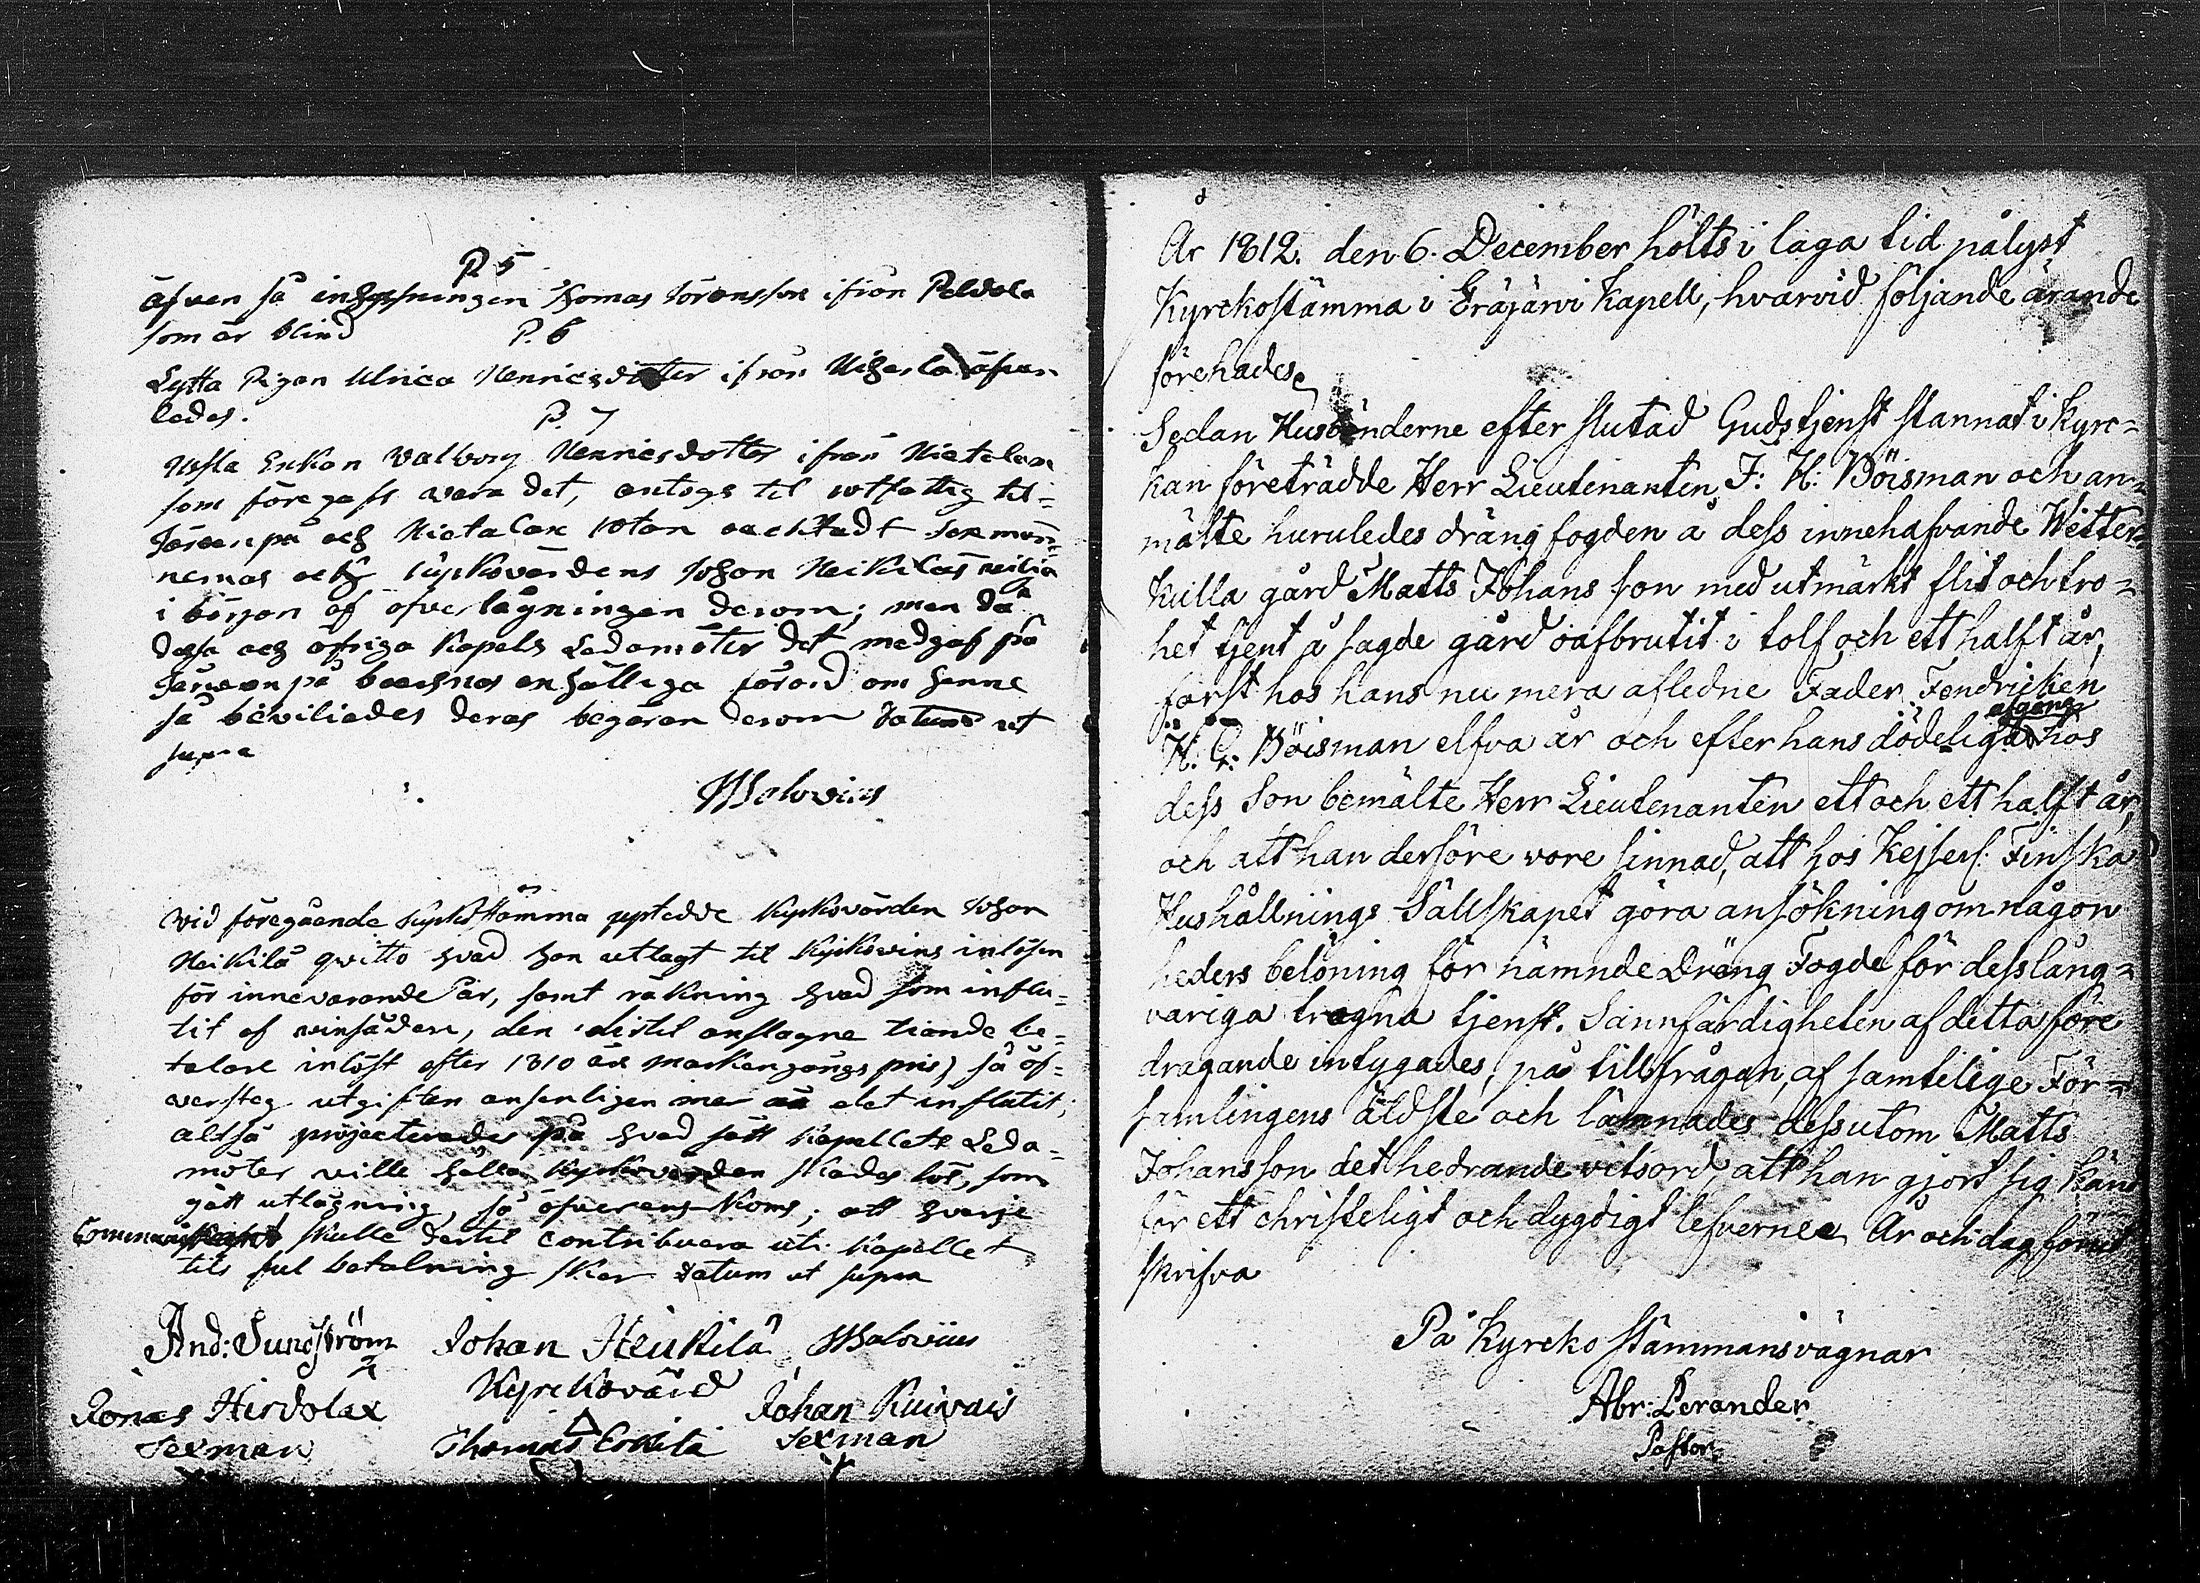 P. 5
äfven så inhysningen Thomas Göransson ifrån Peldola
som är blind
P. 6
Lytta Pigan Ulrica Henricsdotter ifrån äfven
ledes.
P. 7
Usla Enkan Valborg Henricsdotter ifrån Hietalax
som föregafs vara det, antogs til rotfattig til
Järvenpä och Hietalax rotar oachtadt sexmän=
nernas och kyrkovärdens Johan Heikiläs
i början af öfverlägningen derom; men då
dessa och öfriga Kapels Ledamöter det medgaf på
Järvenpä boernas enhälliga förord om henne
så beviliades deras begäran derom Datum ut
supra
Salovius
Vid föregående kyrkstämma uptedde kyrkovärden Johan
Heikilä qvitto hvad han utlagt til kyrkovins inlösen
för innevarande år, samt räkning hvad som influ=
tit af vinsäden, den distel anslagne tiande be=
talare inlöst efter 1810 års markengångs pris) så öf=
versteg utgiften ansenligen mer än det influtit;
altså projecterades på hvad sätt kapellets Leda=
möter ville hålla kyrkovärden skadeslös, som
gått utlägning, så öfverens koms; att hvarje
Communikant skulle dertil contribuera uti kapellet
tils ful betalning sker Datum ut supra
And: Sundström Johan Heikilä Salovius
Kyrckovärd
Jonas Hirdolax Johan Kuivais
Sexman Thomas Erkilä Sexman
År 1812. den 6. December hölts i laga tid pålyst
Kyrckostämma i Eräjärvi Kapell, hvarvid följande ärande
förehades.
Sedan Husbönderne efter slutad Gudstjenst stannat i kyrc=
kan företrädde Herr Lieutenanten J: H: Böisman och an=
mälte huruledes drängfogden å dess innehafvande Wetter=
kulla gård Matts Johans son med utmärkt flit och tro=
het tjent å sagde gård oafbrutit i tolf och ett halft år,
först hos hans nu mera afledne Fader Fendricken
H. C: Böisman elfva år och efter hans dödeliga afgång hos
dess Son bemälte Herr Lieutenanten ett och ett halft år,
och att han derföre vore sinnad, att hos Kejserl: Finska
Hushållnings Sällskapet göra ansökning om någon
heders belöning för nämnde Dräng Fogde för dess lång=
variga trogna tjenst. Sannfärdigheten af detta före
dragande intygades, på tillfrågan, af samtelige För=
samlingens äldste och lämnades dessutom Matts
Johansson det hedrande vitsord, att han gjort sig känd
för ett christeligt och dygdigt lefverne. År och dag förut
skrifva
På Kyrcko stämmans vägnar
Abr: Lerander
Pastor